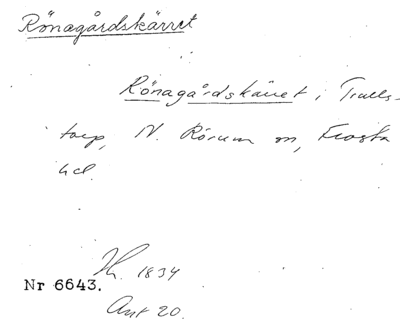 Rönagårdskärret
Rönagårdskärret i Trulls-
torp, N. Rörum sn, Frosta
hd.
1834
Nr 6643.
Ant 20.